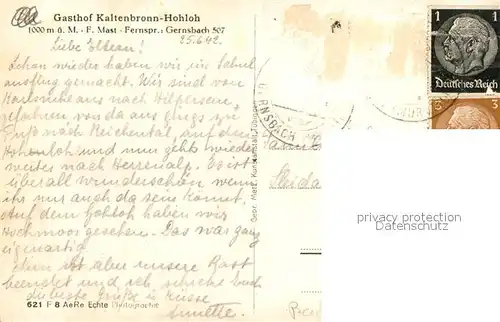 Gasthof Kaltenbronn-Hohloh
1000 m ü. M. - F. Mast - Fernspr.: Gernsbach 507
25.6.42.
Liebe Eltern!
Schon wieder haben wir ein Schul
ausflug gemacht. Wir sind von
Karlsruhe aus nach Hilpertsau
gefahren, von da aus gings zu
Fuß nach Reichental, auf den
Hohloh und nun geht's
weiter nach Herrenalb. Es ist
überall wunderschön wenn
ihr nur auch da sein könnt.
Auf dem Hohloh haben wir
Hochmoor gesehen. Das war ganz
eigenartig
ist aber unsere Rast
beendet und ich schicke euch
die beste Grüße u. Küsse
Annette.
621 F 8 AeRe Echte Photographie
Gebr. Metz, Kunstanstalt, Tübingen
GERNSBACH
1
Deutsches Reich
3
privacy protection
Datenschutz